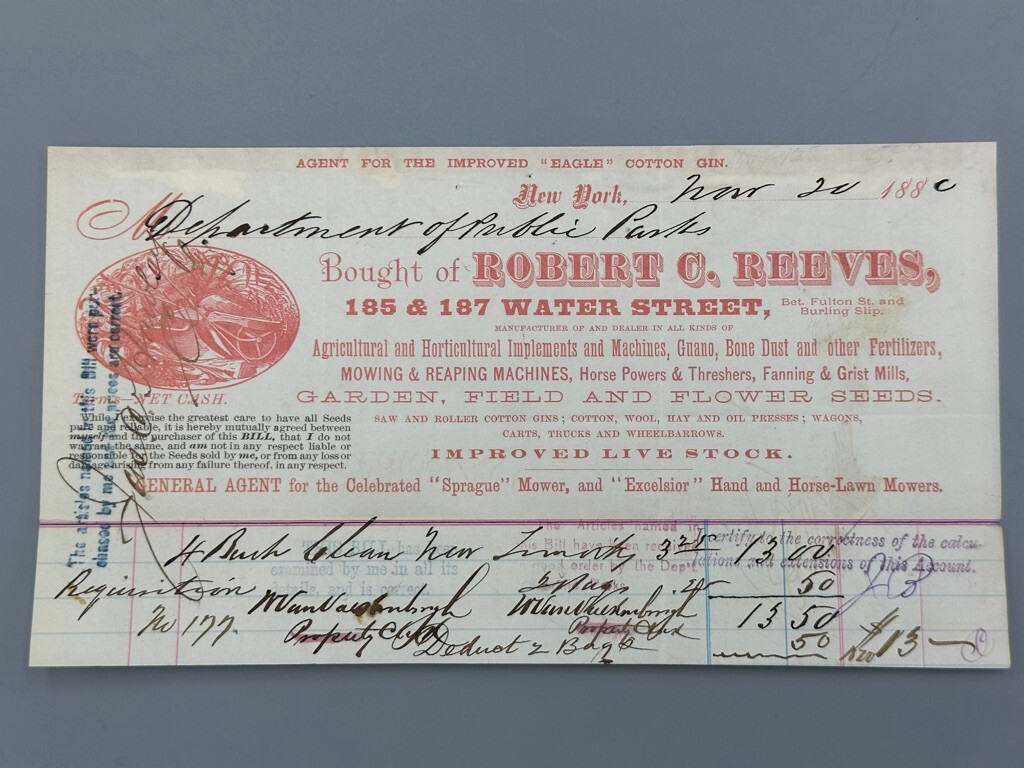 AGENT FOR THE IMPROVED "EAGLE" COTTON GIN.
New York, Nov 20 1880
M Department of Public Parks
Bought of ROBERT C. REEVES,
185 & 187 WATER STREET, Bet. Fulton St. and Burling Slip.
MANUFACTURER OF AND DEALER IN ALL KINDS OF
Agricultural and Horticultural Implements and Machines, Guano, Bone Dust and other Fertilizers,
MOWING & REAPING MACHINES, Horse Powers & Threshers, Fanning & Grist Mills,
GARDEN, FIELD AND FLOWER SEEDS.
SAW AND ROLLER COTTON GINS; COTTON, WOOL, HAY AND OIL PRESSES; WAGONS,
CARTS, TRUCKS AND WHEELBARROWS.
IMPROVED LIVE STOCK.
GENERAL AGENT for the Celebrated "Sprague" Mower, and "Excelsior" Hand and Horse-Lawn Mowers.
Terms—NET CASH.
While I exercise the greatest care to have all Seeds
pure and reliable, it is hereby mutually agreed between
myself and the purchaser of this BILL, that I do not
warrant the same, and am not in any respect liable or
responsible for the Seeds sold by me, or from any loss or
damage arising from any failure thereof, in any respect.
The articles named in this Bill were pur-
chased by me and the prices are correct.
4 Bush Clean New 3 25 13 00
2 Bags 50
13 50
Requisition
No 177.
Property Clerk
Property Clerk
Deduct 2 Bags 50
$13
THIS BILL has been
examined by me in all its
details, and is correct.
The Articles named in
this Bill have been received
order by the Dep't
Parks.
I certify to the correctness of the calcu-
lations and extensions of this Account.